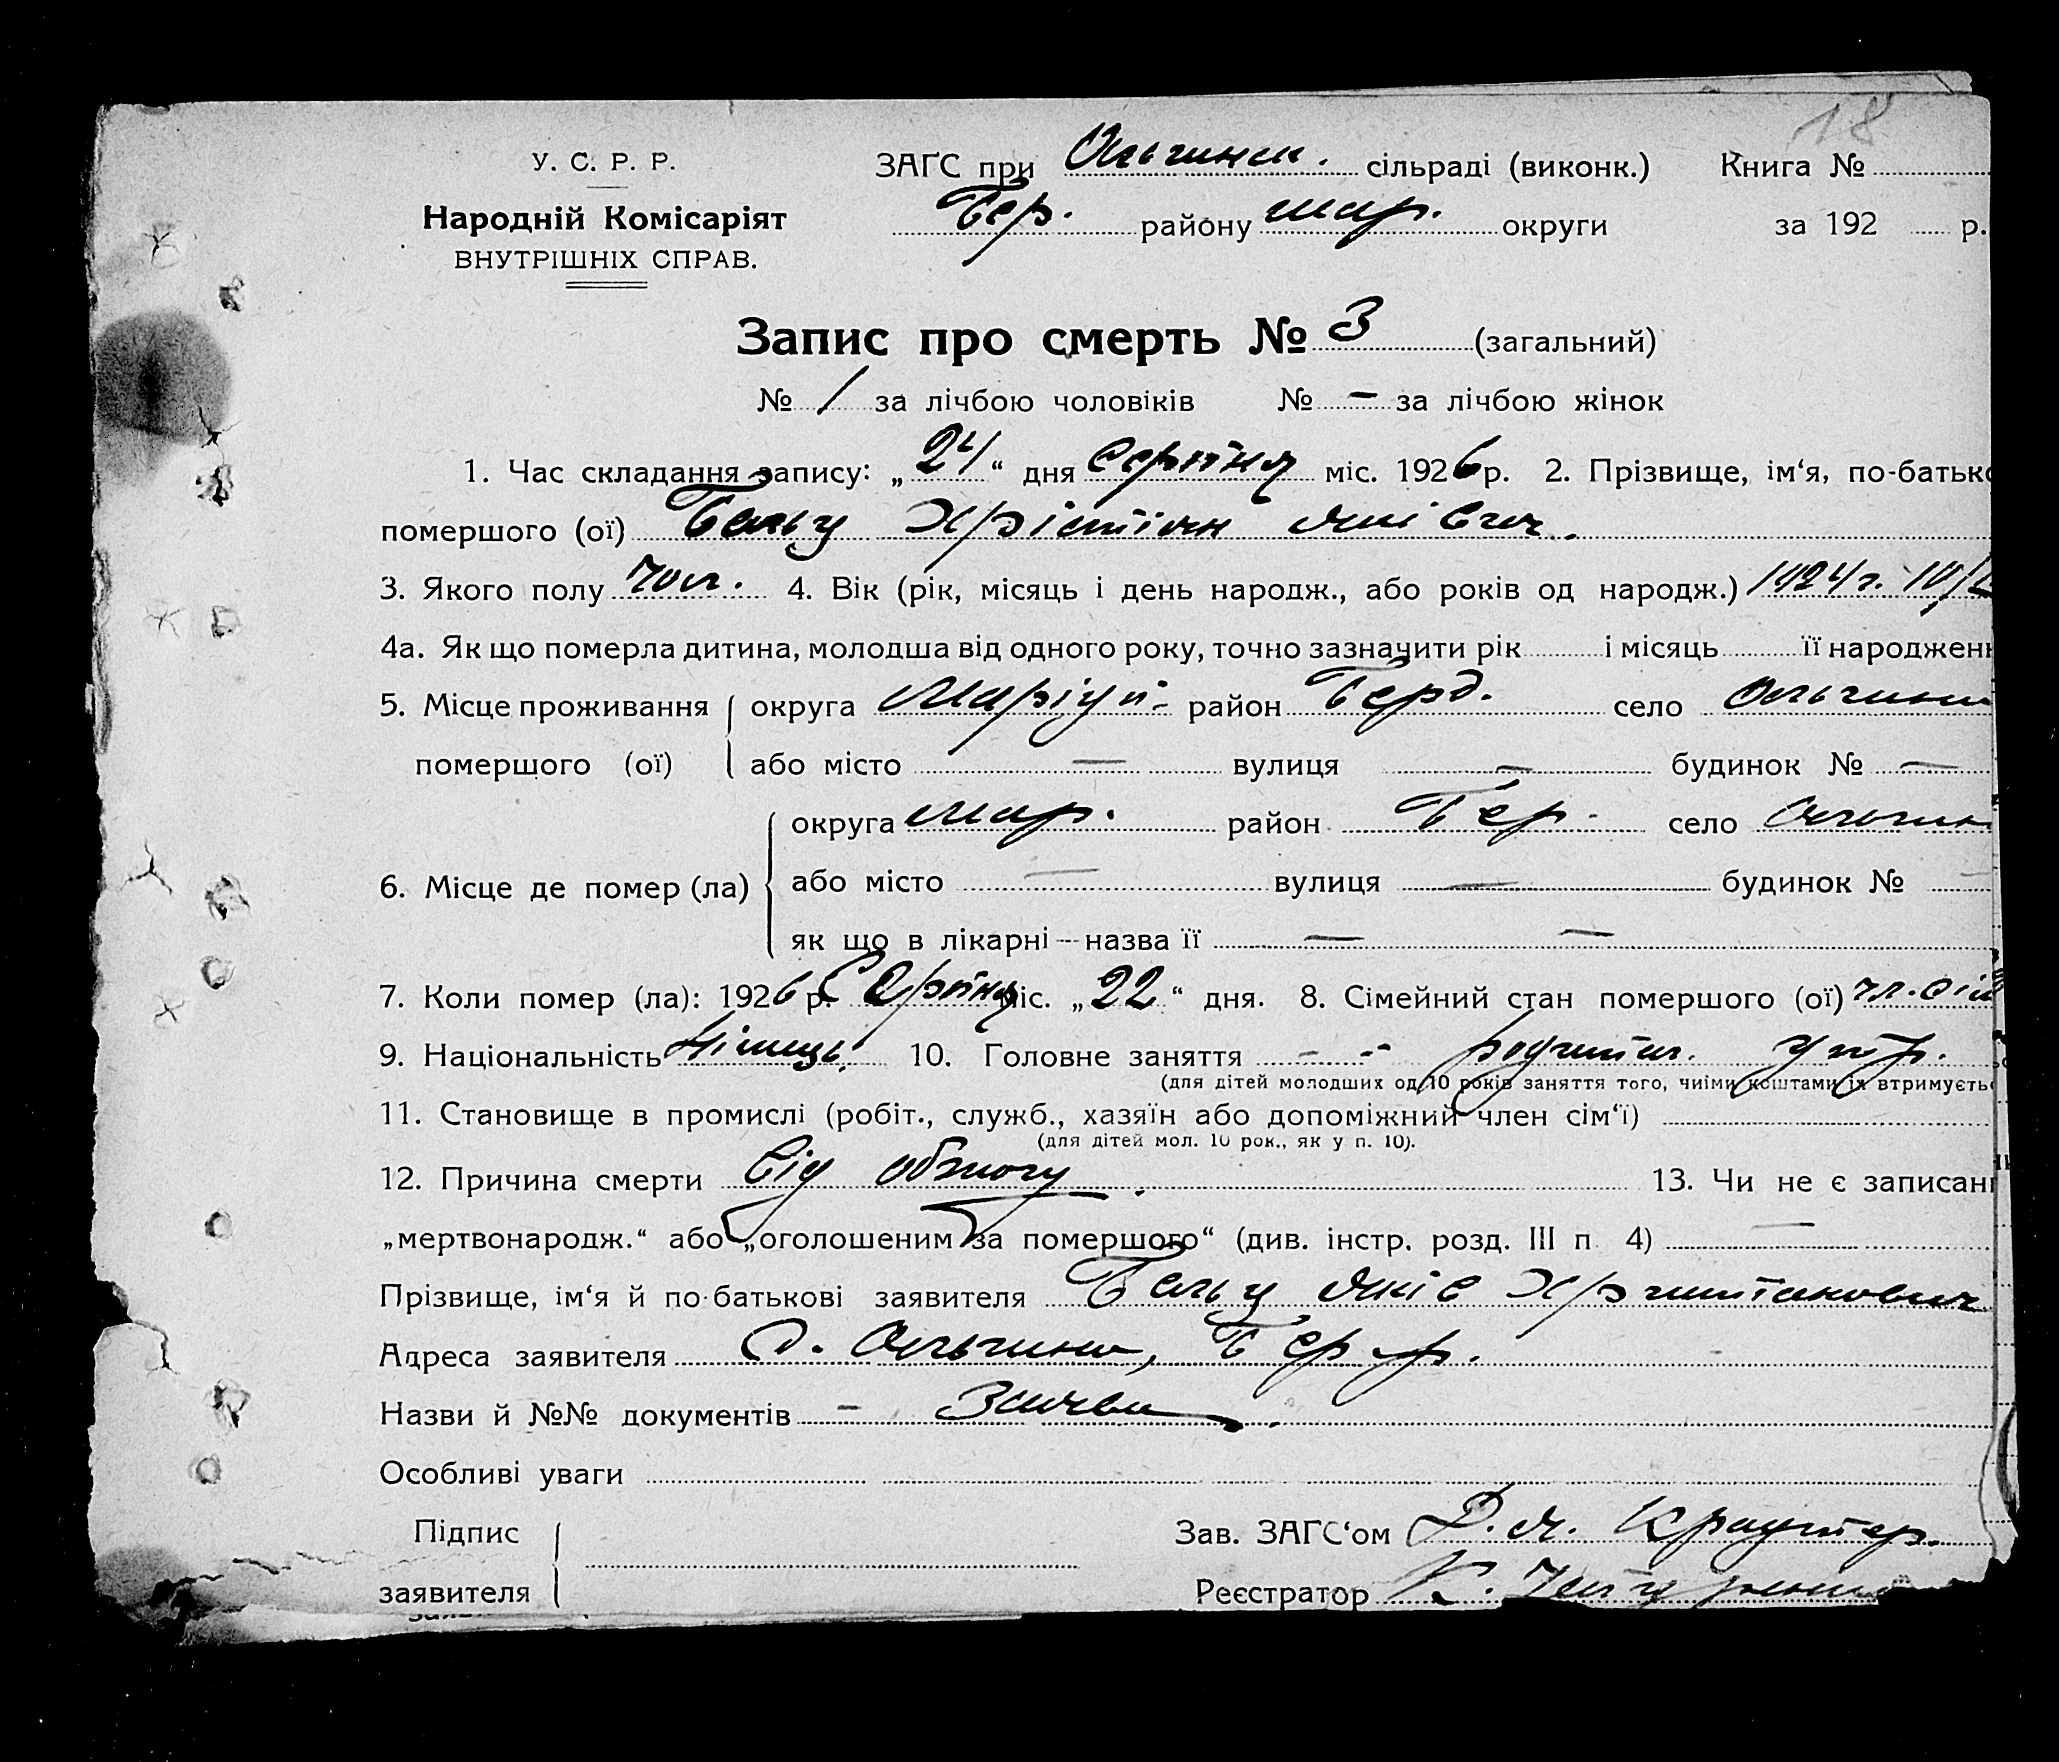 18
У. С. Р. Р.
ЗАГС при Ольгинск. сільраді (виконк.) Книга №
Народній Комісаріят
Бер. району мар. округи за 192 р.
ВНУТРІШНІХ СПРАВ.
Запис про смерть № 3 (загальний)
№ 1 за лічбою чоловіків № — за лічбою жінок
1. Час складання запису: „24“ дня Серпня міс. 1926 р. 2. Прізвище, ім‘я, по-батько
помершого (ої) Бельц Хрістіян Яківич.
3. Якого полу чол. 4. Вік (рік, місяць і день народж., або років од народж.) 1924 г.
4а. Як що померла дитина, молодша від одного року, точно зазначити рік і місяць її народжен
5. Місце проживання округа Маріуп. район Берд. село Ольгино
помершого (ої) або місто — вулиця — будинок № —
округа Мар. район Бер. село Ольгин
6. Місце де помер (ла) або місто — вулиця — будинок № —
як що в лікарні — назва її — —
7. Коли помер (ла): 1926 р. Серпня міс. „22“ дня. 8. Сімейний стан помершого (ої) чл. сім
9. Національність Німець. 10. Головне заняття - -
(для дітей молодших од 10 років заняття того, чиїми коштами їх втримуєть
11. Становище в промислі (робіт., служб., хазяїн або допоміжний член сім‘ї)
(для дітей мол. 10 рок., як у п. 10).
12. Причина смерти Від обжогу. 13. Чи не є записан
„мертвонародж.“ або „оголошеним за помершого“ (див. інстр. розд. III п 4) —
Прізвище, ім‘я й по-батькові заявителя Бельц Яків Християнович
Адреса заявителя с. Ольгино, Бер. р.
Назви й №№ документів - Заява.
Особливі уваги
Підпис Зав. ЗАГС‘ом Д. Я. Краутер.
заявителя Реєстратор К.